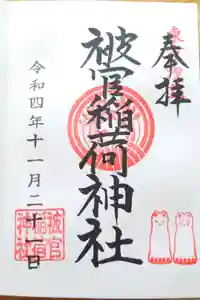 奉拝
被官稲荷神社
令和四年十一月二十一日
被官
稲荷
神社